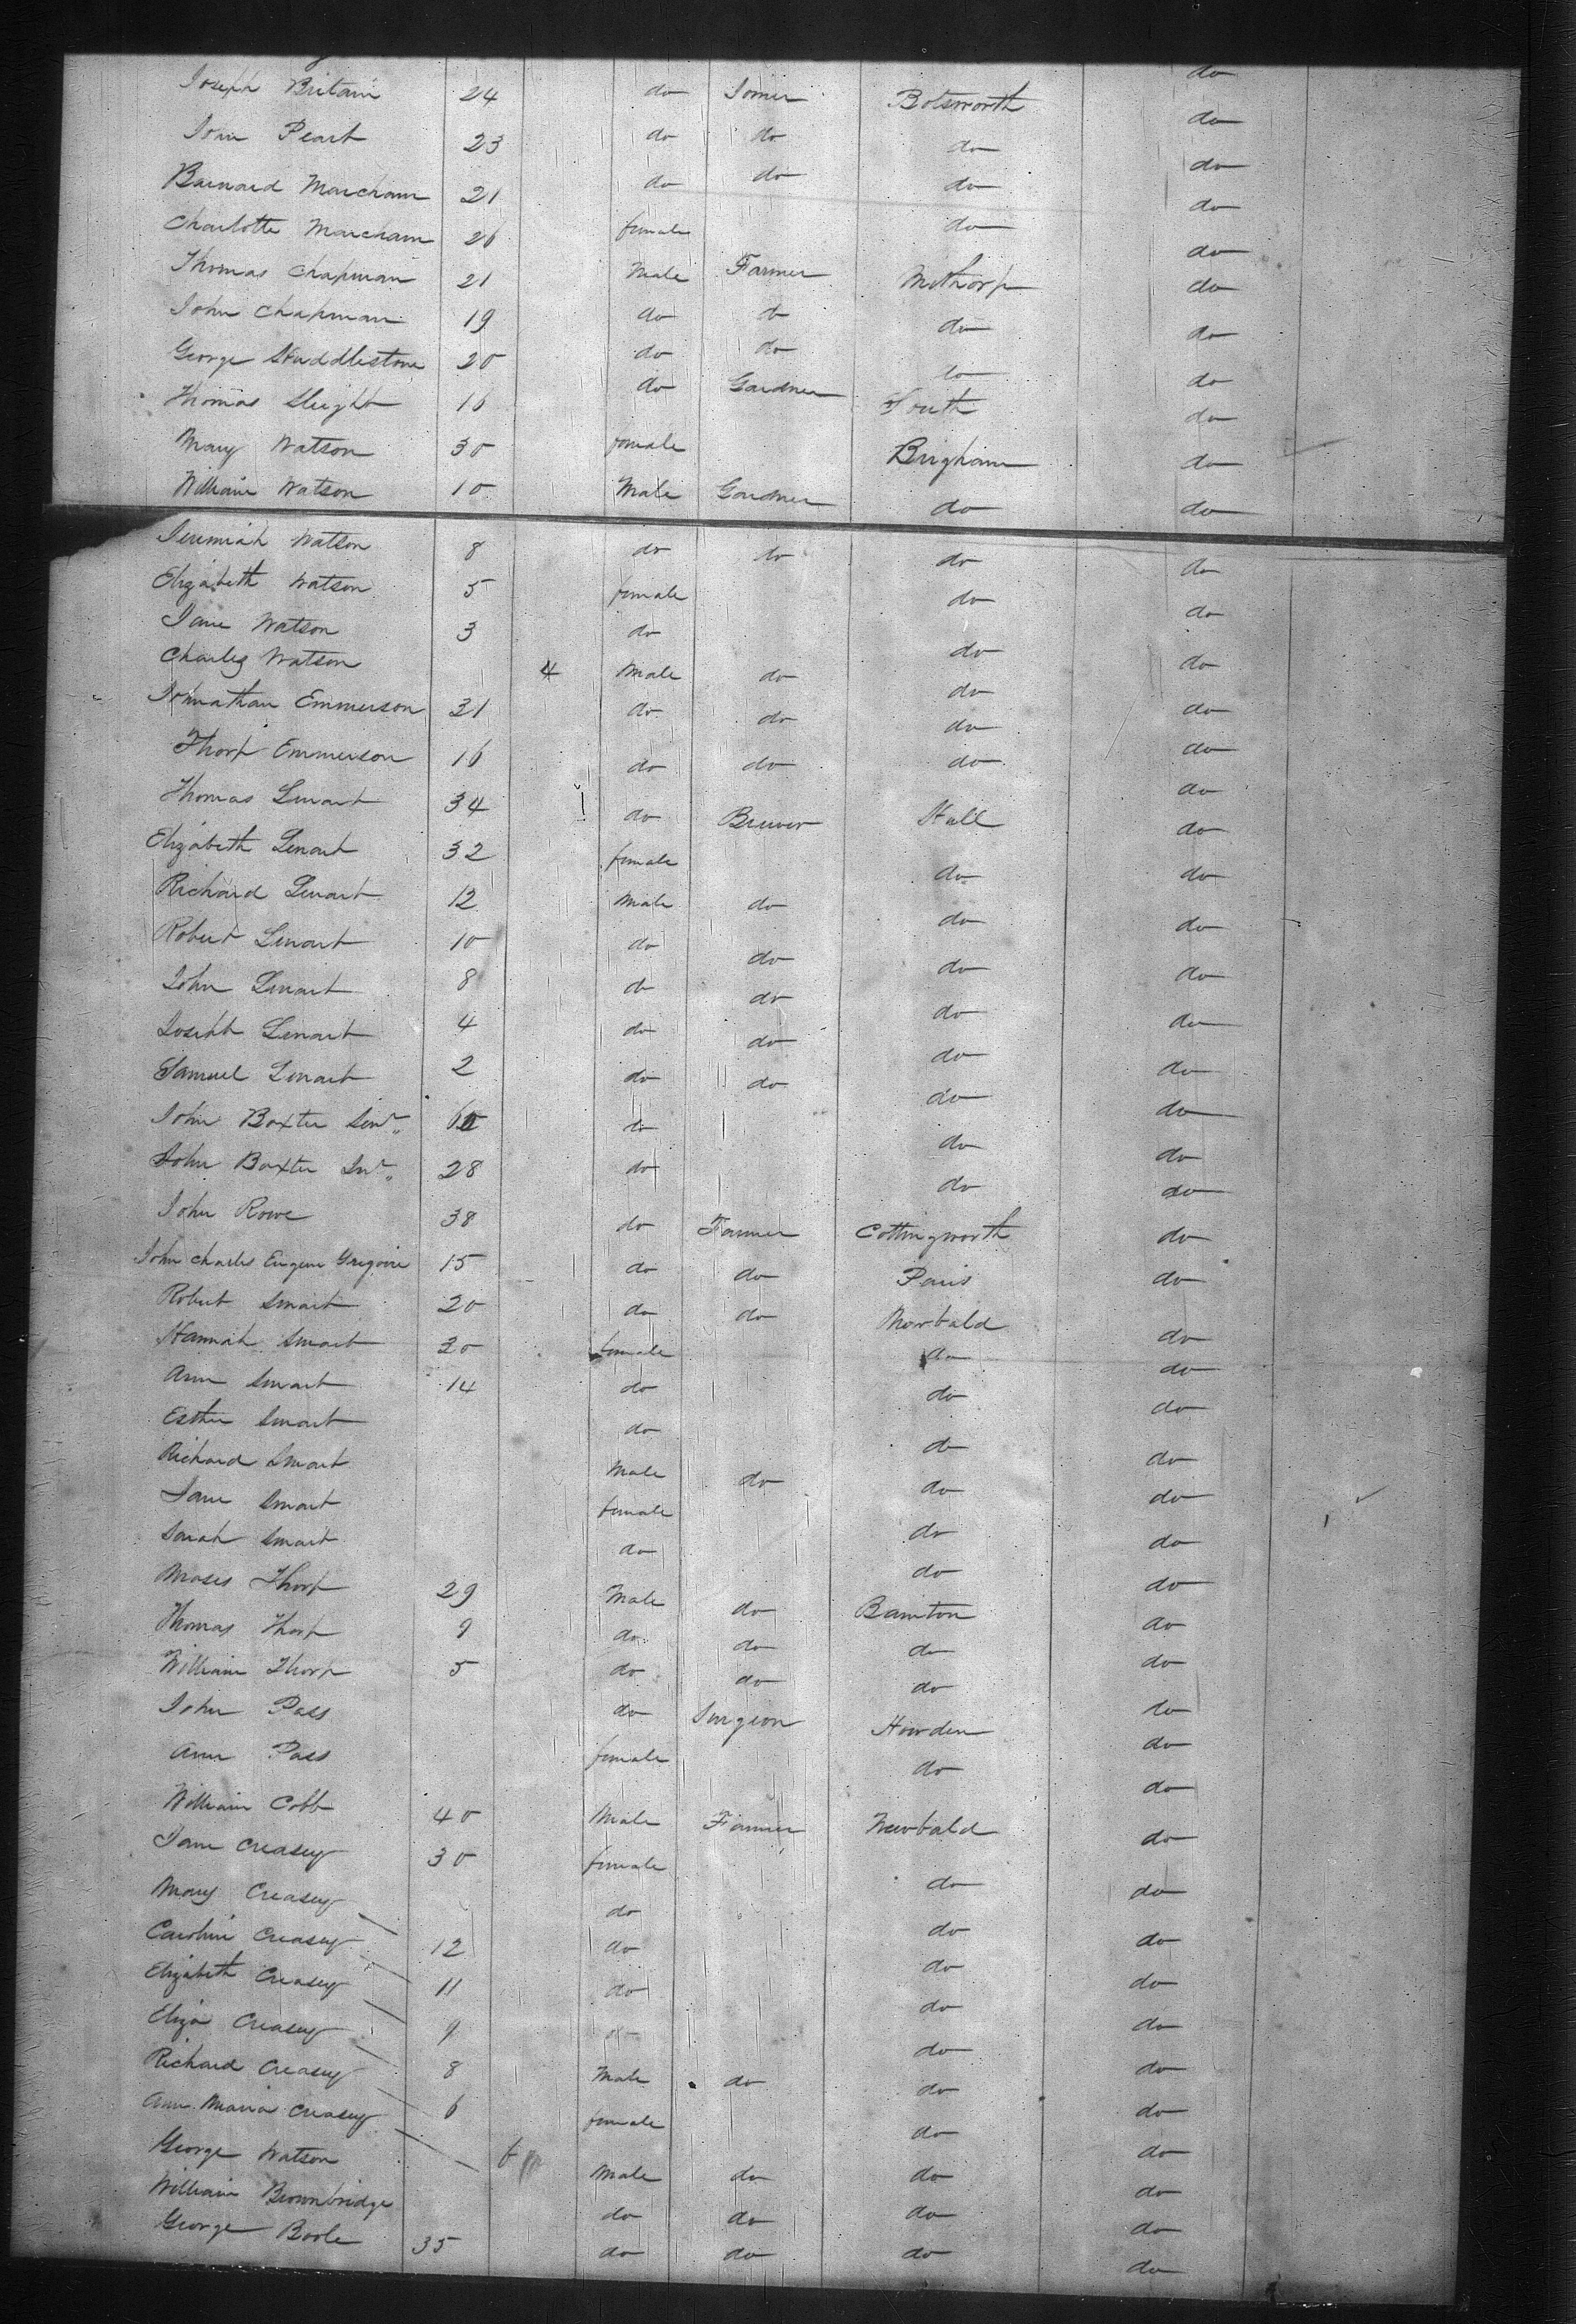 do
Joseph Britain 24 do Joiner Botsworth do
John Peart 23 do do do do
Barnard Marcham 21 do do do do
Charlotte Marcham 26 female do do
Thomas Chapman 21 Male Farmer Mothorp do
John Chapman 19 do do do do
George Studdlestone 20 do do do do
Thomas Sleight 16 do Gardner South do
Mary Watson 30 female Brigham do
William Watson 10 Male Gardner do do
Jeremiah Watson 8 do do do do
Elizabeth Watson 5 female do do
Jane Watson 3 do do do
Charles Watson 4 Male do do do
Johnathan Emmerson 31 do do do do
Thorp Emmerson 16 do do do do
Thomas Lenart 34 do Brewer Hull do
Elizabeth Lenart 32 female do do
Richard Lenart 12 Male do do do
Robert Lenart 10 do do do do
John Lenart 8 do do do do
Joseph Lenart 4 do do do do
Samuel Lenart 2 do do do do
John Baxter Senr 60 do do do
John Baxter Jnr 28 do do do
John Rowe 38 do Farmer Cottingworth do
John Charles Eugene Gregoire 15 do do Paris do
Robert Smart 20 do do Newbald do
Hannah Smart 30 female do do
Ann Smart 14 do do do
Esther Smart do do do
Richard Smart Male do do do
Jane Smart female do do
Sarah Smart do do do
Moses Thorp 29 Male do Bainton do
Thomas Thorp 9 do do do do
William Thorp 5 do do do do
John Pass do Surgeon Howden do
Ann Pass female do do
William Cobb 40 Male Farmer Newbald do
Jane Creasey 30 female do do
Mary Creasey do do do
Caroline Creasey 12 do do do
Elizabeth Creasey 11 do do do
Eliza Creasey 9 do do do
Richard Creasey 8 Male do do do
Ann Maria Creasey 6 female do do
George Watson 6 Male do do do
William Brownbridge do do do do
George Boole 35 do do do do